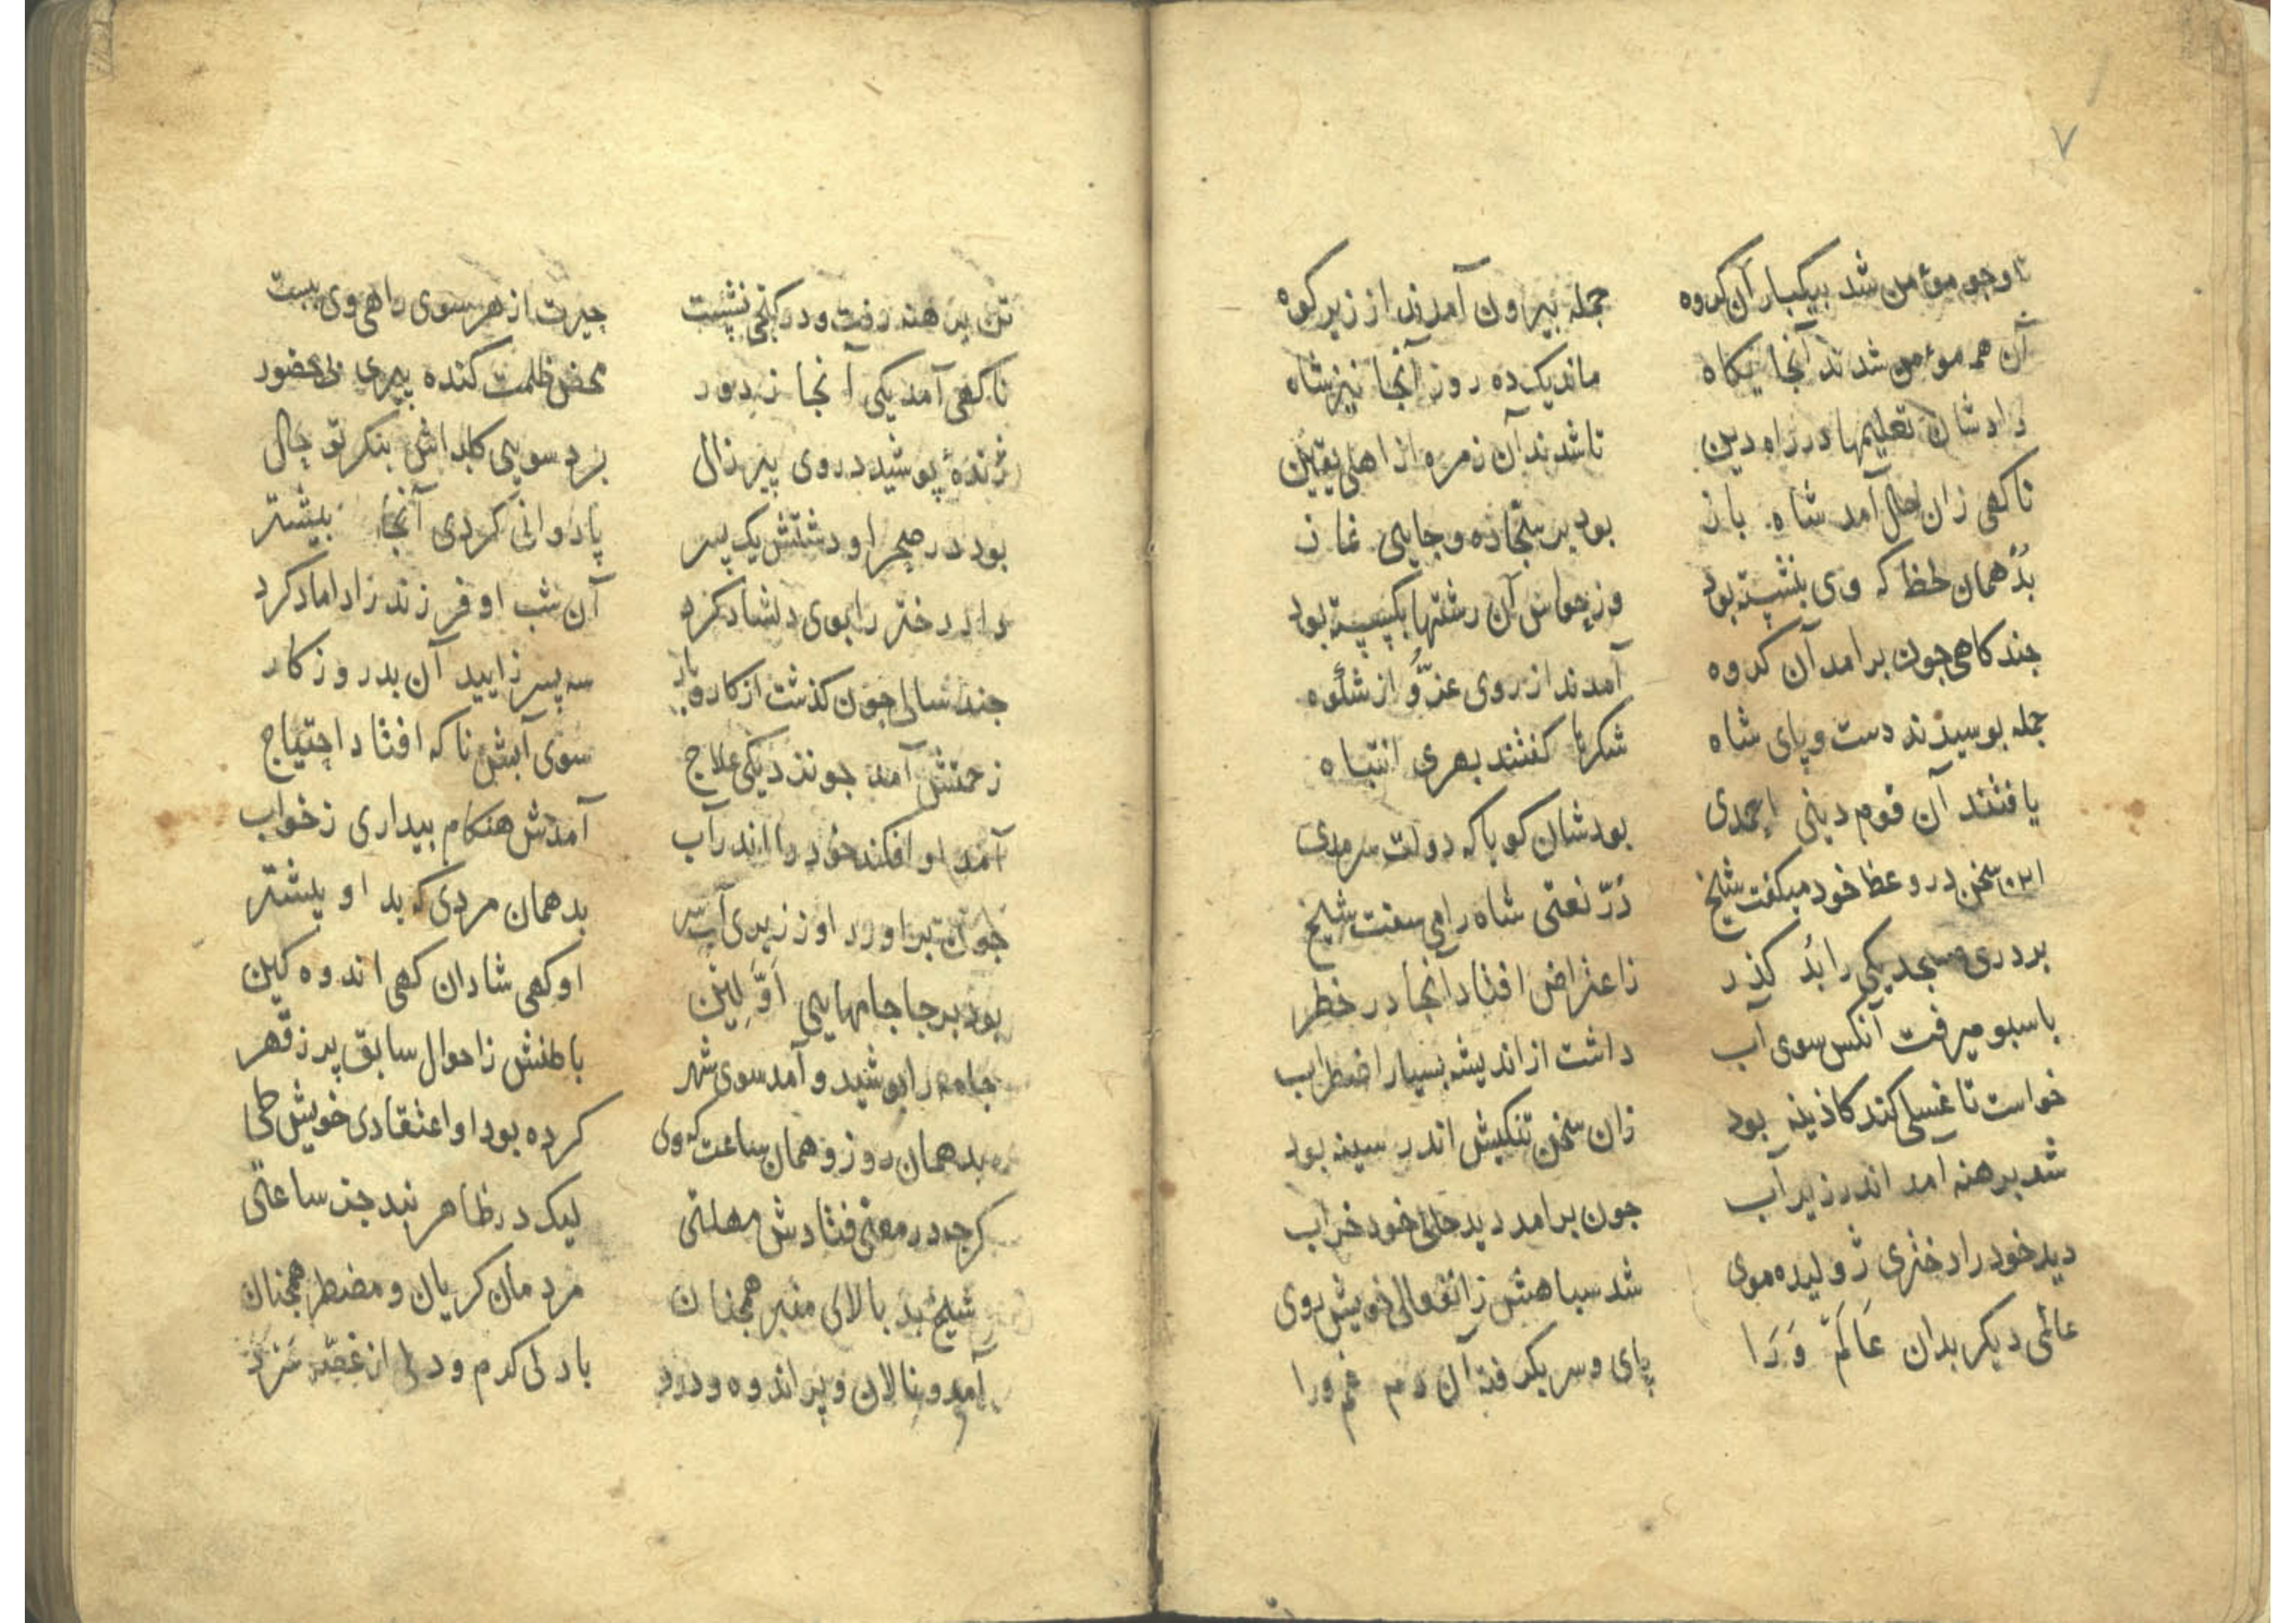 ٧
تا وجو موءمن شد بیکبار آن کروه جمله بیرون آمدند از زیر کوه
آن همه موءمن شدند آنجا یکاه ماند یک ده روز آنجا نیز شاه
دادشان تعلیمها در راه دین تا شدند آن زمره از اهل یقین
ناکهی زان حال آمد شاه باز بود بر سجّاده و جایی نماز
بُد همان لحظ که وی بنشسته بود وز حواس آن رشتها بکسسته بود
جند کاهی جون برامد آن کروه آمدند از روی عزّ و از شکوه
جمله بوسیدند دست و پای شاه شکرها کفتند بهری انتباه
یافتند آن قوم دینی احمدی بودشان کویا که دولت سرمدی
این سخن در وعظ خود میکفت شیخ دُرّ نعتی شاه را می سفت شیخ
بر دری مسجد یکی را بُد کذر ز اعتراض افتاد آنجا در خطر
با سبو میرفت آنکس سوی آب داشت از اندیشه بسیار اضطراب
خواست تا غسلی کند کاذینه بود زان سخن تنکیش اندر سینه بود
شد برهنه امد اندر زیر آب جون برامد دید حالی خود خراب
دید خود را دختری ژولیده موی شد سیاهش ز انفعالی خویش روی
عالمی دیکر بدان عَالَمْ وَرَا پای و سر بکرفته آن دم غم ورا
تن برهنه رفت و در کنجی نشست حیرت از هر سوی راهی وی ببست
ناکهی آمد یکی آنجا ز دور محض ظلمت کنده پیری بی حضور
ژندهٔ پوشید در روی پیر زال برد سویی کلبه اش بنکر تو حال
بود در صحرا و دشتش یک پسر پادوانی کردی آنجا بیشتر
داد دختر را بوی دلشاد کرد آن شب او فرزند را داماد کرد
جند سالی جون کذشت از کار و بار سه پسر زایید آن بد روزکار
زحمتش آمد جو نزدیکی علاج سوی آبش ناکه افتاد احتیاج
آمد او افکند خود را اندر آب آمدش هنکام بیداری ز خواب
جون براورد او ز زیری آب سر بد همان مردی که بد او پیشتر
بود بر جا جامهایی اَوّلین او کهی شادان کهی اندوهکین
جامه را پوشید و آمد سوی شهر باطنش ز احوال سابق پر ز قهر
بد همان روز و همان ساعت که وی کرده بود او اعتقادی خویش طی
کرجه در معنی فتادش مهلتی لیک در ظاهر نبد جز ساعتی
شیخ بد بالای منبر همجنان مردمان کریان و مضطر همجنان
آمد و نالان و پر اندوه و درد با دلی کرم و دمی از غصّه سرد